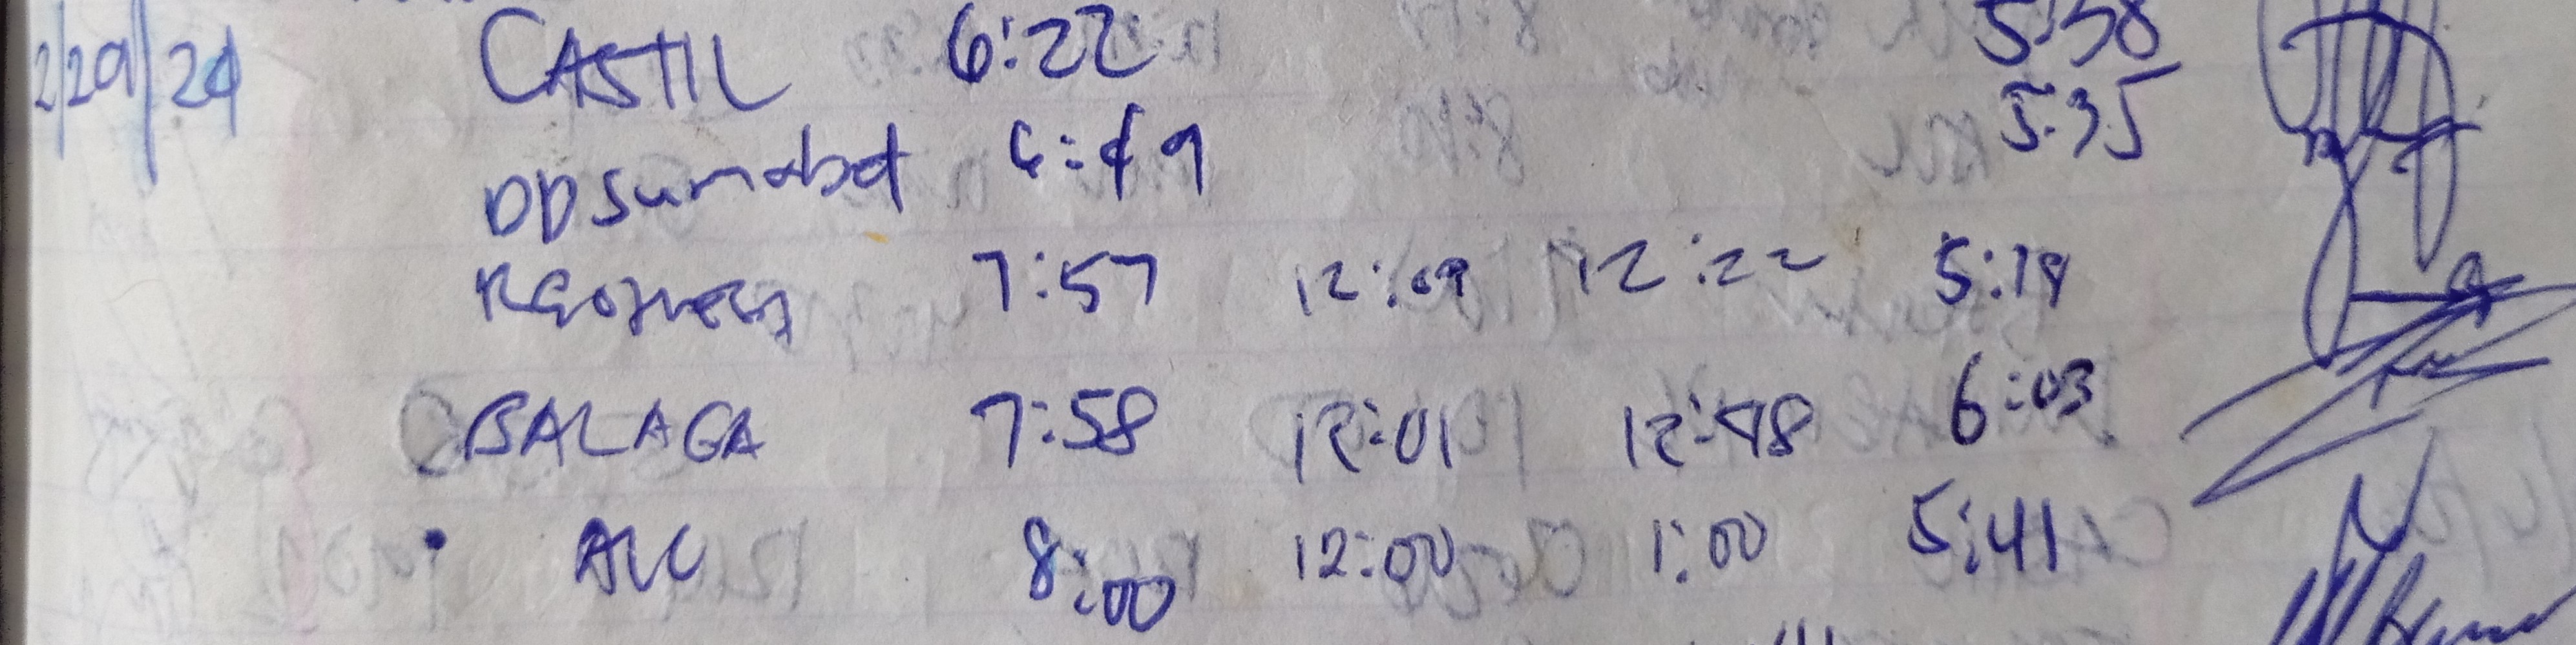 2/29/24 CASTIL 6:22 5:38
DD Sumabat 6:49 5:35
7:57 12:09 12:22 5:19
BALAGA 7:58 12:01 12:48 6:03
ALC 8:00 12:00 1:00 5:41